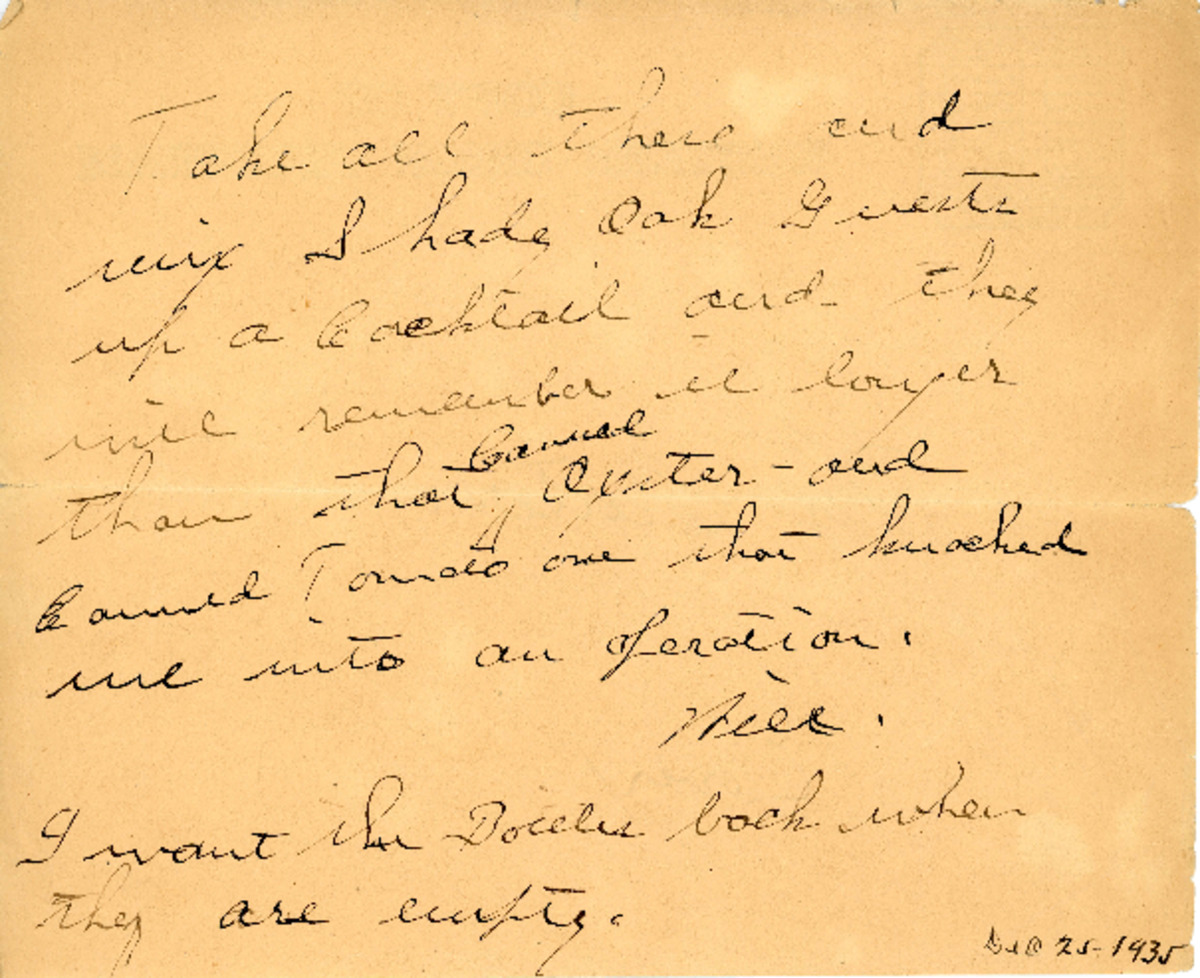 Take all these and
mix Shady Oak Guests
up a Cocktail and they
will remember it longer
than that Canned Oyster - and
Canned Tomato one that knocked
me into an operation.
Will.
I want the Bottles back when
they are empty.
Dec 25-1935